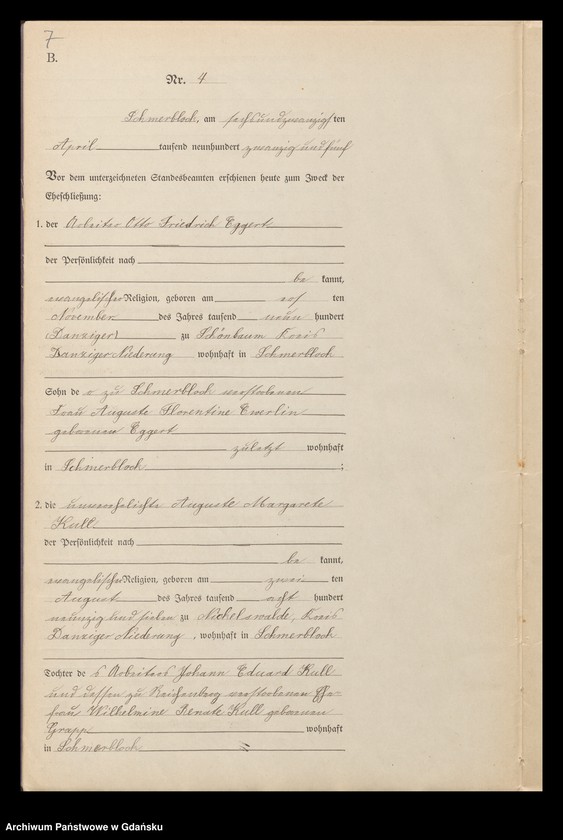 7
B.
Nr. 4
Schmerblock, am sechsundzwanzig ten
April tausend neunhundert zwanzig und fünf
Vor dem unterzeichneten Standesbeamten erschienen heute zum Zweck der
Eheschließung:
1. der Arbeiter Otto Friedrich Eggert
der Persönlichkeit nach
be kannt,
evangelischer Religion, geboren am ten
November des Jahres tausend neun hundert
zu Schönbaum Kreis
Danziger Niederung wohnhaft in Schmerblock
Sohn de r zu Schmerblock verstorbenen
Frau Auguste Florentine Ewerlin
geborenen Eggert
zuletzt wohnhaft
in Schmerblock ;
2. die unverehelichte Auguste Margarete
Kull
der Persönlichkeit nach
be kannt,
evangelischer Religion, geboren am zwei ten
August des Jahres tausend acht hundert
neunzig und sieben zu Nickelswalde, Kreis
Danziger Niederung, wohnhaft in Schmerblock
Tochter de s Arbeiters Johann Eduard Kull
und dessen zu Reichenberg verstorbenen Ehe-
frau Wilhelmine Renate Kull geborenen
Grapp wohnhaft
in Schmerblock
Archiwum Państwowe w Gdańsku